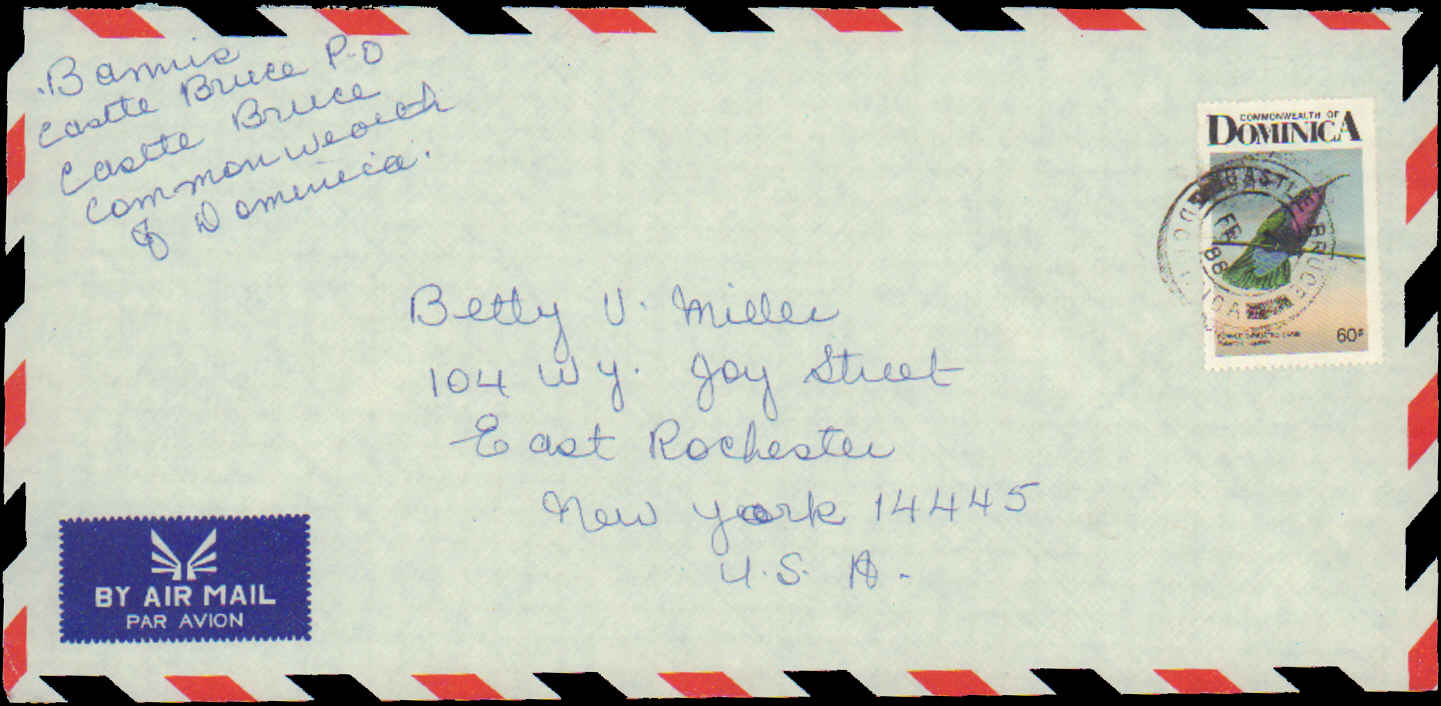 Bannis
Castle Bruce P.O
Castle Bruce
Commonwealth
of Dominica.
COMMONWEALTH OF
DOMINICA
CASTLE BRUCE
FE
88
60¢
Betty V. Miller
104 W y. Joy Street
East Rochester
New York 14445
U.S.A.
BY AIR MAIL
PAR AVION